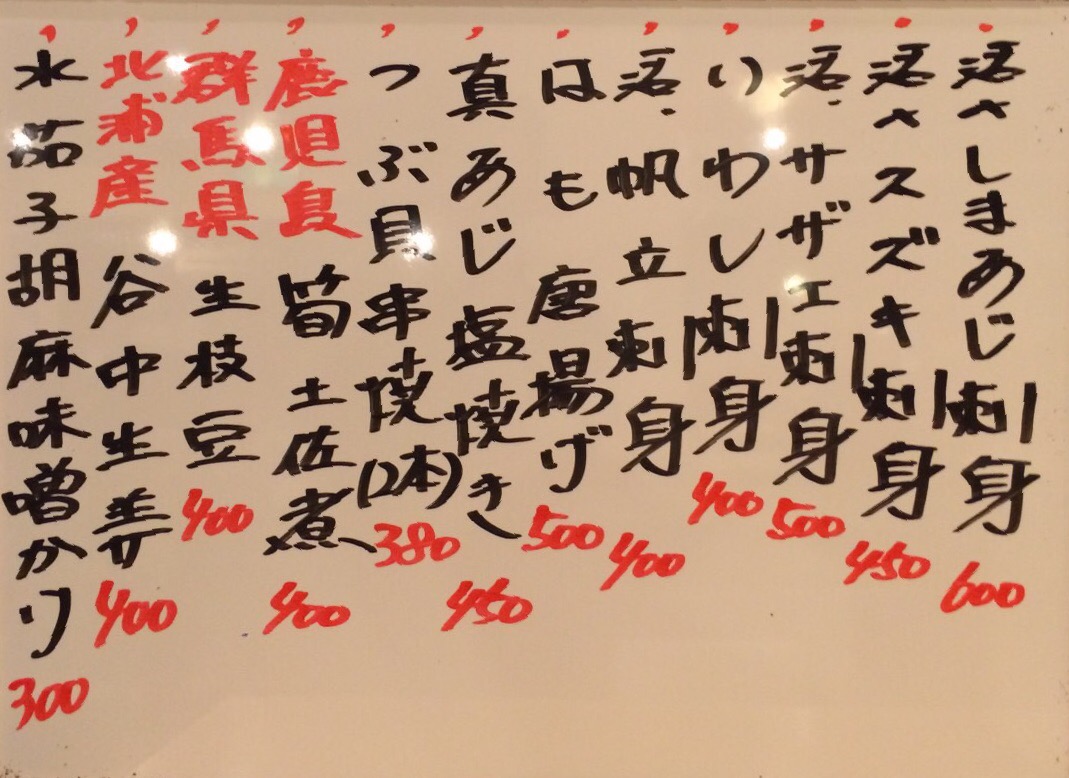 ・活〆しまあじ刺身 600
・活〆スズキ刺身 450
・活・サザエ刺身 500
・いわし刺身 400
・活・帆立刺身 400
・はも唐揚げ 500
・真あじ塩焼き 450
・つぶ貝串焼(2本) 380
・鹿児島 筍土佐煮 400
・群馬県 生枝豆 400
・北浦産 谷中生姜 400
・水茄子胡麻味噌かけ 300